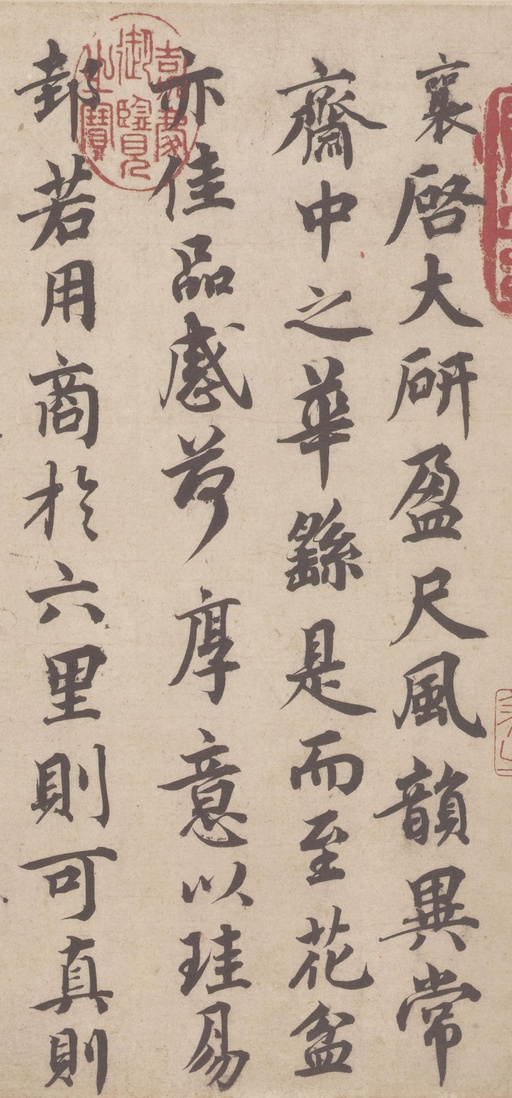 襄啓大研盈尺風韻異常
齋中之華繇是而至花盆
亦佳品感荷厚意以珪易
邽若用商於六里則可真則